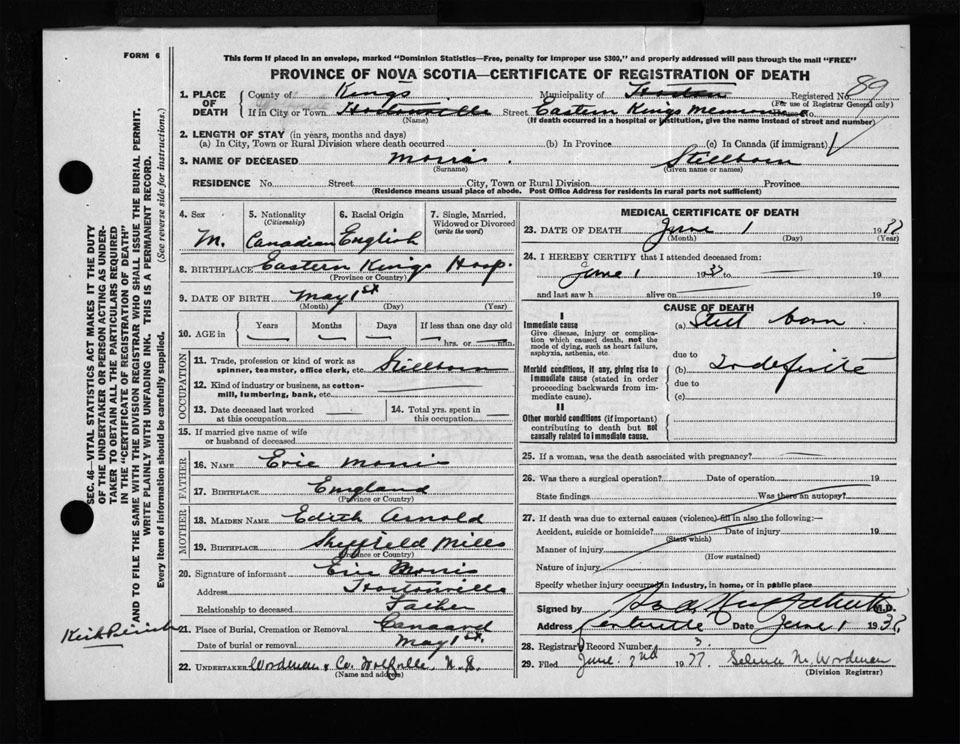 FORM 6
This form if placed in an envelope, marked "Dominion Statistics—Free, penalty for improper use $300," and properly addressed will pass through the mail "FREE"
PROVINCE OF NOVA SCOTIA—CERTIFICATE OF REGISTRATION OF DEATH
1. PLACE OF DEATH County of Kings Municipality of Horton Registered No. 89
(For use of Registrar General only)
If in City or Town Hortonville Street Eastern Kings Memorial House No.
(Name) (If death occurred in a hospital or institution, give the name instead of street and number)
2. LENGTH OF STAY (in years, months and days)
(a) In City, Town or Rural Division where death occurred (b) In Province (c) In Canada (if immigrant)
3. NAME OF DECEASED Morris. Stillborn
(Surname) (Given name or names)
RESIDENCE No. Street City, Town or Rural Division Province
(Residence means usual place of abode. Post Office Address for residents in rural parts not sufficient)
SEC. 46—VITAL STATISTICS ACT MAKES IT THE DUTY
OF THE UNDERTAKER OR PERSON ACTING AS UNDER-
TAKER TO OBTAIN ALL THE PARTICULARS REQUIRED
IN THE "CERTIFICATE OF REGISTRATION OF DEATH"
AND TO FILE THE SAME WITH THE DIVISION REGISTRAR WHO SHALL ISSUE THE BURIAL PERMIT.
WRITE PLAINLY WITH UNFADING INK. THIS IS A PERMANENT RECORD.
Every item of information should be carefully supplied. (See reverse side for instructions.)
4. Sex M.
5. Nationality (Citizenship) Canadian
6. Racial Origin English
7. Single, Married, Widowed or Divorced (write the word)
8. BIRTHPLACE Eastern Kings Hosp.
(Province or Country)
9. DATE OF BIRTH May 1st
(Month) (Day) (Year)
10. AGE in Years Months Days If less than one day old
hrs. or min.
OCCUPATION
11. Trade, profession or kind of work as spinner, teamster, office clerk, etc. Stillborn
12. Kind of industry or business, as cotton-mill, lumbering, bank, etc.
13. Date deceased last worked at this occupation
14. Total yrs. spent in this occupation
15. If married give name of wife or husband of deceased
FATHER
16. NAME Eric Morris
17. BIRTHPLACE England
(Province or Country)
MOTHER
18. MAIDEN NAME Edith Arnold
19. BIRTHPLACE Sheffield Mills
(Province or Country)
20. Signature of informant Eric Morris
Address Hortonville
Relationship to deceased Father
21. Place of Burial, Cremation or Removal Canaard
Date of burial or removal May 1st.
22. UNDERTAKER Woodman & Co. Wolfville, N.S.
(Name and address)
MEDICAL CERTIFICATE OF DEATH
23. DATE OF DEATH June 1 1937
(Month) (Day) (Year)
24. I HEREBY CERTIFY that I attended deceased from:
June 1 1937 to 19
and last saw h alive on 19
CAUSE OF DEATH
I
Immediate cause
Give disease, injury or complication which caused death, not the mode of dying, such as heart failure, asphyxia, asthenia, etc.
(a) Still born
due to
Morbid conditions, if any, giving rise to immediate cause (stated in order proceeding backwards from immediate cause).
(b) Indefinite
due to
(c)
II
Other morbid conditions (if important) contributing to death but not causally related to immediate cause.
25. If a woman, was the death associated with pregnancy?
26. Was there a surgical operation? Date of operation 19
State findings Was there an autopsy?
27. If death was due to external causes (violence) fill in also the following:—
Accident, suicide or homicide? Date of injury 19
(State which)
Manner of injury
(How sustained)
Nature of injury
Specify whether injury occurred in industry, in home, or in public place
Signed by M.D.
Address Date June 1 1937
28. Registrar's Record Number 3.
29. Filed June 2nd 1937 Selena M. Woodman
(Division Registrar)